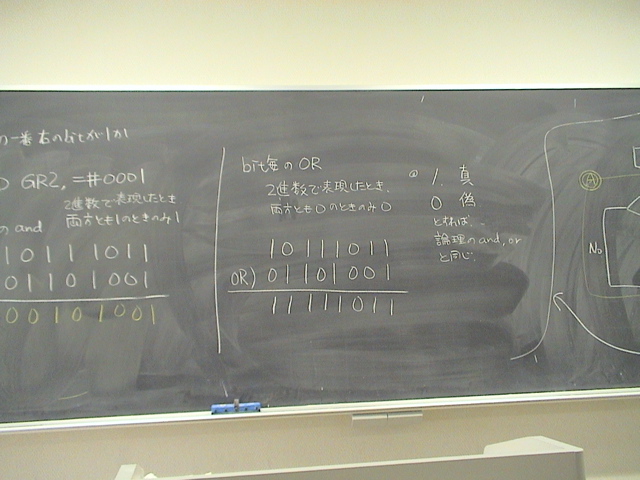 の一番右のbitが1か
GR2, =#0001
2進数で表現したとき
両方とも1のときのみ1
の and
10111011
01101001
00101001
bit毎の OR
2進数で表現したとき、
両方とも0のときのみ0
10111011
OR) 01101001
11111011
1. 真
0 偽
とすれば、
論理のand, or
と同じ.
A
No